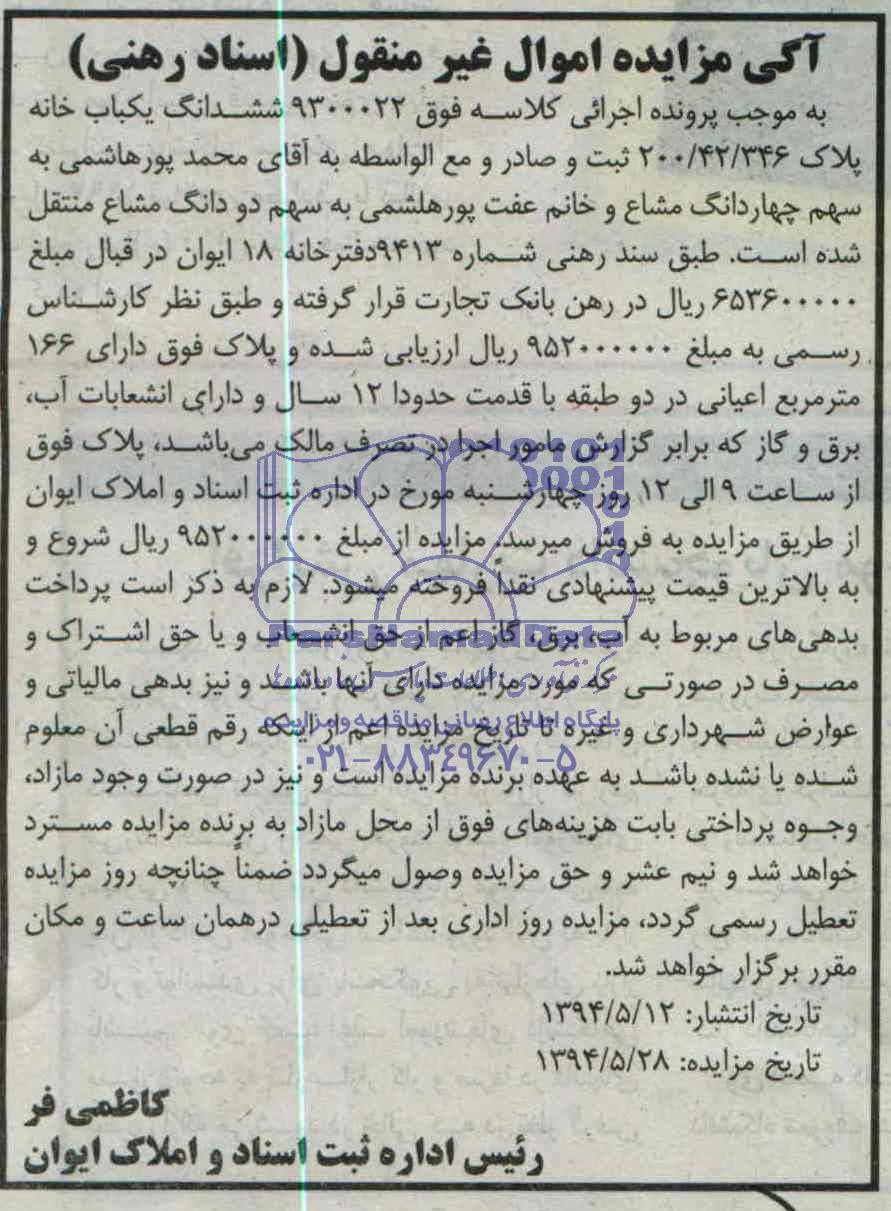 آگی مزایده اموال غیر منقول (اسناد رهنی)
به موجب پرونده اجرائی کلاسه فوق ۹۳۰۰۰۲۲ ششدانگ یکباب خانه
پلاک ۲۰۰/۴۲/۳۴۶ ثبت و صادر و مع الواسطه به آقای محمد پورهاشمی به
سهم چهاردانگ مشاع و خانم عفت پورهلشمی به سهم دو دانگ مشاع منتقل
شده است. طبق سند رهنی شماره ۹۴۱۳دفترخانه ۱۸ ایوان در قبال مبلغ
۶۵۳۶۰۰۰۰۰ ریال در رهن بانک تجارت قرار گرفته و طبق نظر کارشناس
رسمی به مبلغ ۹۵۲۰۰۰۰۰۰ ریال ارزیابی شده و پلاک فوق دارای ۱۶۶
مترمربع اعیانی در دو طبقه با قدمت حدودا ۱۲ سال و دارای انشعابات آب،
برق و گاز که برابر گزارش مامور اجرا در تصرف مالک می‌باشد، پلاک فوق
از ساعت ۹ الی ۱۲ روز چهارشنبه مورخ در اداره ثبت اسناد و املاک ایوان
از طریق مزایده به فروش میرسد. مزایده از مبلغ ۹۵۲۰۰۰۰۰۰ ریال شروع و
به بالاترین قیمت پیشنهادی نقداً فروخته میشود. لازم به ذکر است پرداخت
بدهی‌های مربوط به آب، برق، گاز اعم از حق انشعاب و یا حق اشتراک و
مصرف در صورتی که مورد مزایده دارای آنها باشند و نیز بدهی مالیاتی و
عوارض شهرداری و غیره تا تاریخ مزایده اعم از اینکه رقم قطعی آن معلوم
شده یا نشده باشد به عهده برنده مزایده است و نیز در صورت وجود مازاد،
وجوه پرداختی بابت هزینه‌های فوق از محل مازاد به برنده مزایده مسترد
خواهد شد و نیم عشر و حق مزایده وصول میگردد ضمناً چنانچه روز مزایده
تعطیل رسمی گردد، مزایده روز اداری بعد از تعطیلی درهمان ساعت و مکان
مقرر برگزار خواهد شد.
تاریخ انتشار: ۱۳۹۴/۵/۱۲
تاریخ مزایده: ۱۳۹۴/۵/۲۸
کاظمی فر
رئیس اداره ثبت اسناد و املاک ایوان
ParsNamadData
پایگاه اطلاع رسانی مناقصه و مزایده
۰۲۱-۸۸۳۴۹۶۷۰-۵